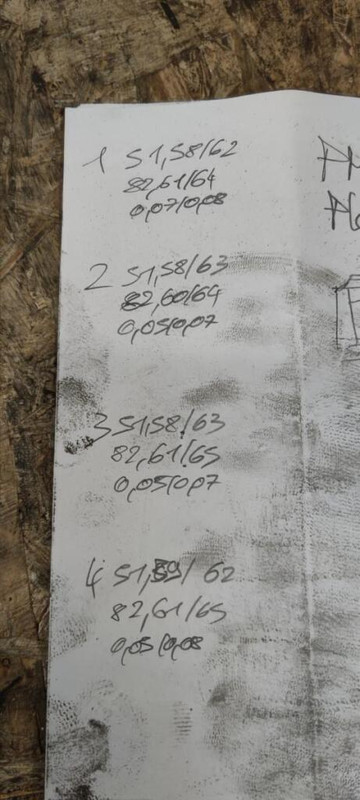 1 51,58/62
82,61/64
0,07/0,08
2 51,58/63
82,60/64
0,05/0,07
3 51,58/63
82,61/65
0,05/0,07
4 51,59/62
82,61/65
0,05/0,08